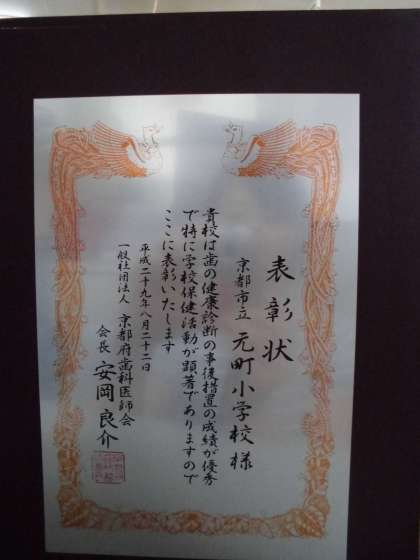 表彰状
京都市立 元町小学校様
貴校は歯の健康診断の事後措置の成績が優秀
で特に学校保健活動が顕著でありますので
ここに表彰いたします
平成二十九年八月二十二日
一般社団法人 京都府歯科医師会
会長 安岡良介